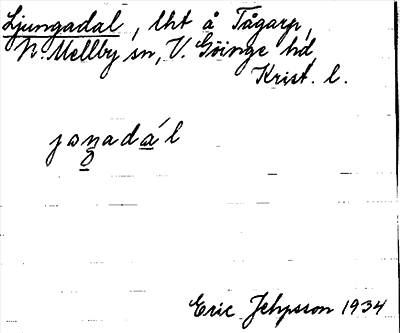 Ljungadal, lht å Tågarp,
N. Mellby sn, V. Göinge hd,
Krist. l.
jaŋadál
Eric Jehpsson 1934